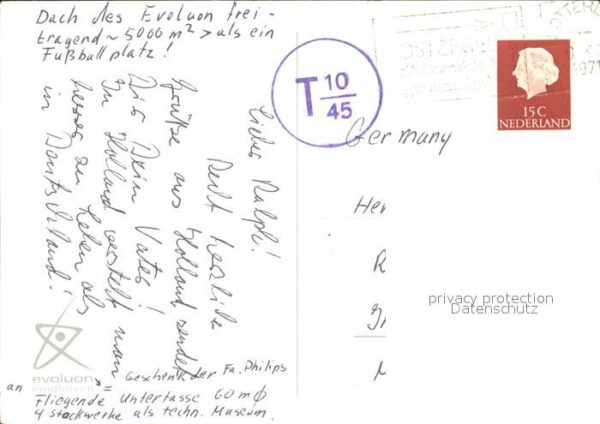 Dach des Evoluon frei-
tragend ~ 5000 m² > als ein
Fußballplatz!
Lieber Ralph!
Recht herzliche
Grüße aus Holland sendet
Dir Dein Vater!
In Holland versteht man
besser zu leben als
in Deutschland!
T 10
45
ROTTERDAM
1971
15 C
NEDERLAND
Germany
Her
R
M
privacy protection
Datenschutz
evoluon
eindhoven
= Geschenk der Fa. Philips
an
Fliegende Untertasse 60 m Ø
4 Stockwerke als techn. Museum.